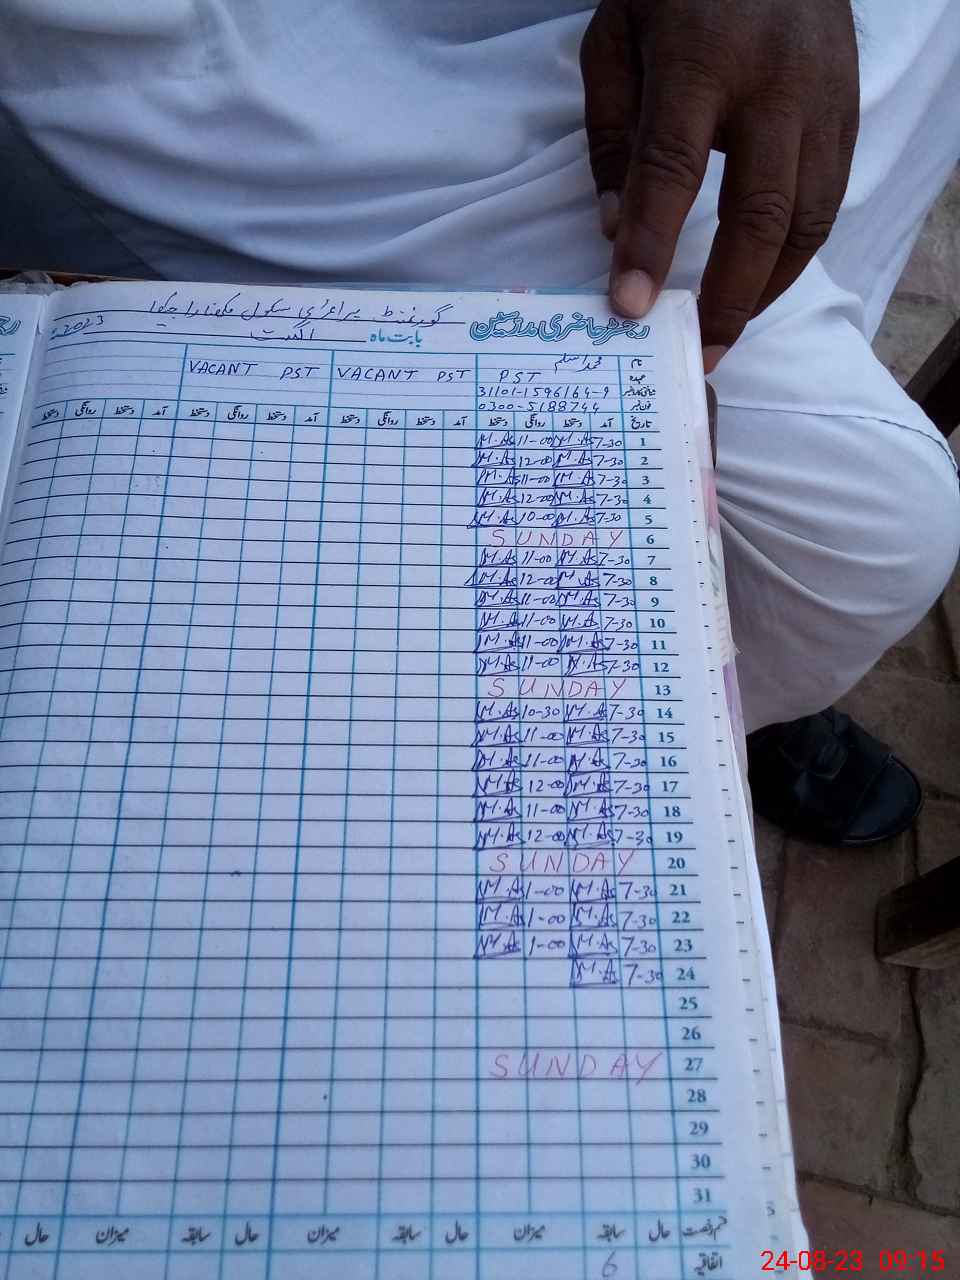 رجسٹر حاضری مدرسین گورنمنٹ پرائمری سکول
بابت ماہ اگست 2023ء
نام محمد اسلم
عہدہ PST VACANT PST VACANT PST
شناختی کارڈ نمبر 31101-1596164-9
فون نمبر 0300-5188744
تاریخ آمد دستخط روانگی دستخط آمد دستخط روانگی دستخط آمد دستخط روانگی دستخط آمد دستخط روانگی دستخط
1 7-30 M.As 11-00 M.As
2 7-30 M.As 12-00 M.As
3 7-30 M.As 11-00 M.As
4 7-30 M.As 12-00 M.As
5 7-30 M.As 10-00 M.As
6 SUNDAY
7 7-30 M.As 11-00 M.As
8 7-30 M.As 12-00 M.As
9 7-30 M.As 11-00 M.As
10 7-30 M.As 11-00 M.As
11 7-30 M.As 11-00 M.As
12 7-30 M.As 11-00 M.As
13 SUNDAY
14 7-30 M.As 10-30 M.As
15 7-30 M.As 11-00 M.As
16 7-30 M.As 11-00 M.As
17 7-30 M.As 12-00 M.As
18 7-30 M.As 11-00 M.As
19 7-30 M.As 12-00 M.As
20 SUNDAY
21 7-30 M.As 1-00 M.As
22 7-30 M.As 1-00 M.As
23 7-30 M.As 1-00 M.As
24 7-30 M.A
25
26
27 SUNDAY
28
29
30
31
قسم رخصت حال سابقہ میزان حال سابقہ میزان حال سابقہ میزان حال
اتفاقیہ 6
24-08-23 09:15